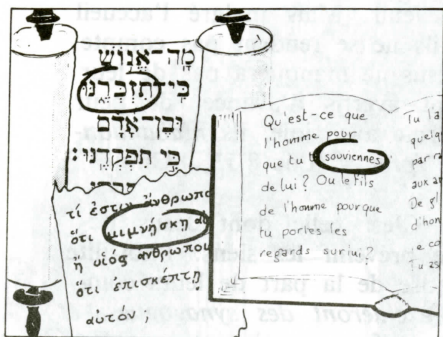 מָה־אֱנוֹשׁ
כִּי־תִזְכְּרֶנּוּ
וּבֶן־אָדָם
כִּי תִפְקְדֶנּוּ׃
τί ἐστιν ἄνθρωπο
ὅτι μιμνήσκῃ αὐ
ἢ υἱὸς ἀνθρώπου
ὅτι ἐπισκέπτῃ
αὐτόν;
Qu'est-ce que
l'homme pour
que tu te souviennes
de lui? Ou le fils
de l'homme pour que
tu portes tes
regards sur lui?
Tu l'a
quelq
par ra
aux an
De gl
d'hon